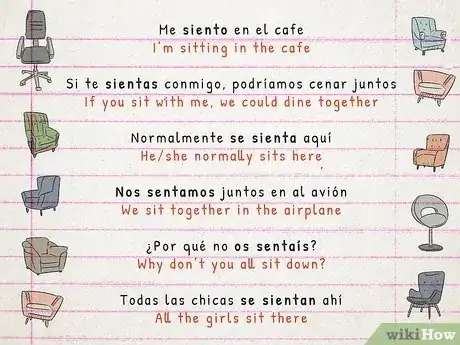 Me siento en el cafe
I'm sitting in the cafe
Si te sientas conmigo, podríamos cenar juntos
If you sit with me, we could dine together
Normalmente se sienta aquí
He/she normally sits here
Nos sentamos juntos en al avión
We sit together in the airplane
¿Por qué no os sentaís?
Why don't you all sit down?
Todas las chicas se sientan ahí
All the girls sit there
wikiHow